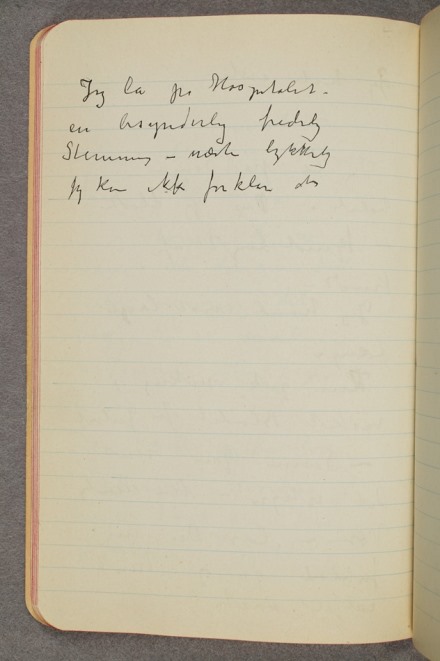 Jeg la på Hospitalet -
en besynderlig fredelig
Stemning - næsten lykkelig
Jeg kan ikke forklare det